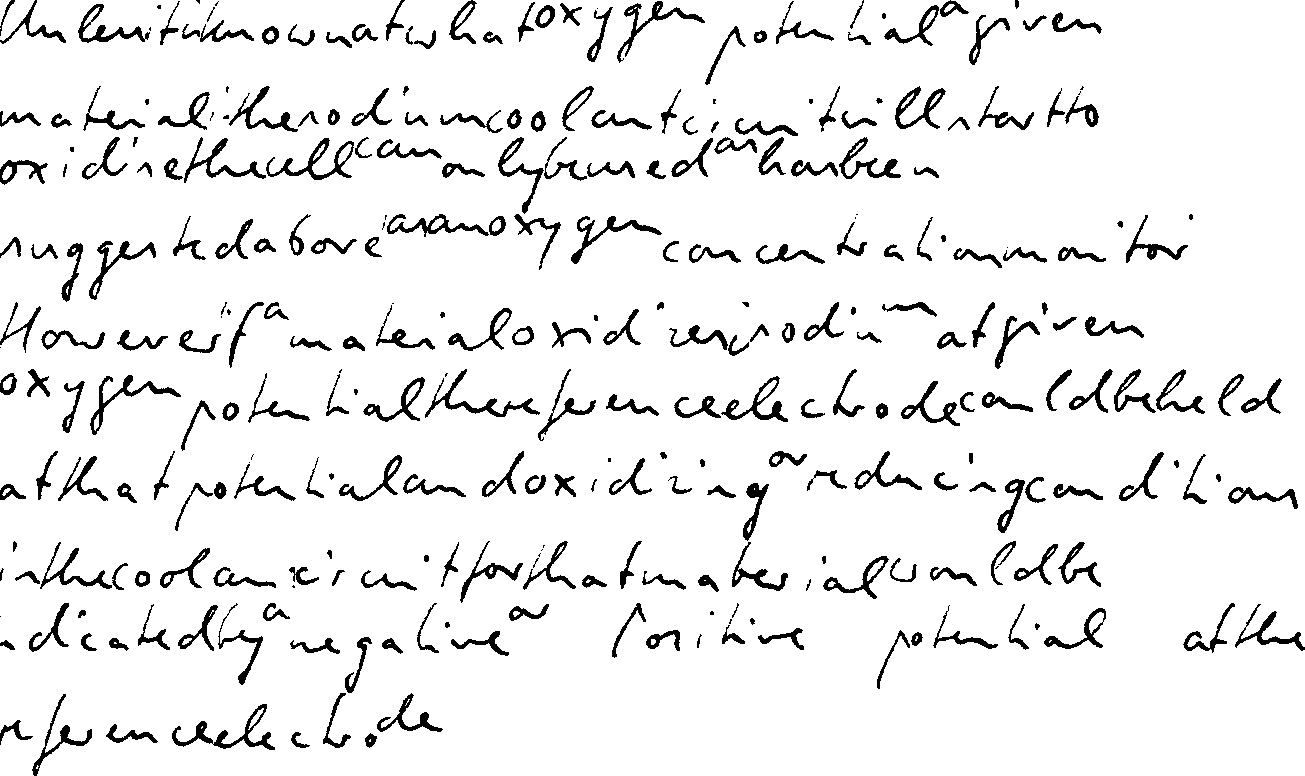 Unless it is known at what oxygen potential a given
material in the sodium coolant circuit will start to
oxidise the cell can only be used as has been
suggested above as an oxygen concentration monitor
However if a material oxidizes in sodium at given
oxygen potential the reference electrode could be held
at that potential and oxidizing or reducing conditions
in the coolant circuit for that material would be
indicated by a negative or positive potential at the
reference electrode